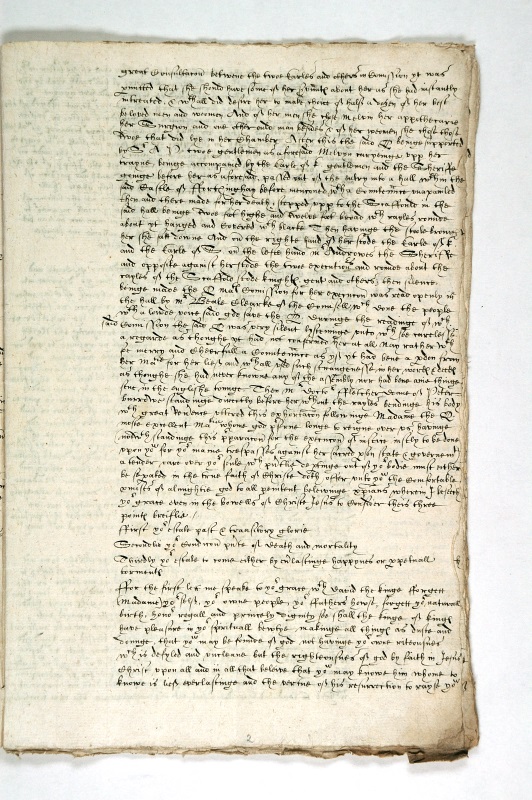 great Consultacon betwene the twoe Earles and others in Comission yt was
pmitted that she should have some of her servants about her as she had instantly
intreated, & wthall did desire her to make choice of half a dozen of her best
beloved men and women And of her men she chose Melvin her appothecarie
her Surgion and one other ould man besides & of her weomen she chose those
twoe that did lye in her chamber. After this the said Q beinge supported
by Sr A P twoe gentlemen aforesaid Melvin carryinge upp her
trayne, beinge accompanied by the Earle of K gentlemen and the Sheriffe
goinge before her as aforesaid, passed out of the entry into a hall wthin the
said Castle of Fotheringhay before mencioned, wth a Countenance unapauled
then and there made for her death, stepped upp to the Scaffould in the
said hall beinge twoe foot highe and twelve foot broad wth rayles rounde
about yt hanged and covered wth blacke Then havinge the stoole brought
her she satt downe And on the right hand of her stode the Earle of K
and the Earle of S. on the left hand Mr Androwes the Sheriffe
and opposite against her stode the twoe execution's and rounde about the
rayles of the Scaffold stode knights, gent and others, then silence
beinge made the Q Mats Comission for her execution was read openly in
the hall by Mr Beale Clearke of the Counsell, wch done the people
wth a lowde voice said god save the Q. Duringe the readinge of wch
said Comission the said Q was very silent listeninge unto yt wth soe careles
a regarde as thoughe yt had not concerned her at all Nay rather wth
so merry and cheerfull a Countenance as yf yt had bene a pdon from
her Matie for her lief, and wthall used such strangenes in her words & deeds
as thoughe she had never knowne any of the assembly nor had bene any thinge
seene in the englishe tounge. Then Mr Doctor Fletcher Deane of Peter
burrowe standinge directly before her wthout the rayles bendinge his body
wth great reverence uttered this exhortacon followinge. Madame the Q
moste excellent Matie whome god pserve longe to reigne over us, havinge
notwthstandinge this pparacon for the execution of justice justly to be done
upon you for yor manie trespasses against her sacred pson state & governemt
a tender care over yor soule wch psentlie depting out of yor bodie must either
be sepated in the true faith of Christe doth offer unto you the comfortable
pmises of almightie god to all penitent beleivinge xpians wherein I beseech
yor grace even in the bowells of Christ Jesus to consider theis three
points breiflie
First yor estate past & transitory glorie
Secondlie yor Condicon psnte of death and mortality
Thirdly yor estate to come either by everlastinge happynes or ppetuall
torments
For the first let me speake to yor grace wth David the kinge. Forgett
Madame yor self, yor owne people, yor fathers howse, forgett yor naturall
birth, honor regall and princely dignity soe shall the kinge of kings
have pleasure in yor spirituall bewtie, makinge all things as duste and
dounge, that you may be founde of god, not havinge yor owne rituousnes
wch is defyled and uncleane but the righteousnes of god by faith in Jesus
Christ upon all and in all that beleve that you may knowe him whome to
knowe is lief everlastinge and the vertue of his resurrection to rayse you
2